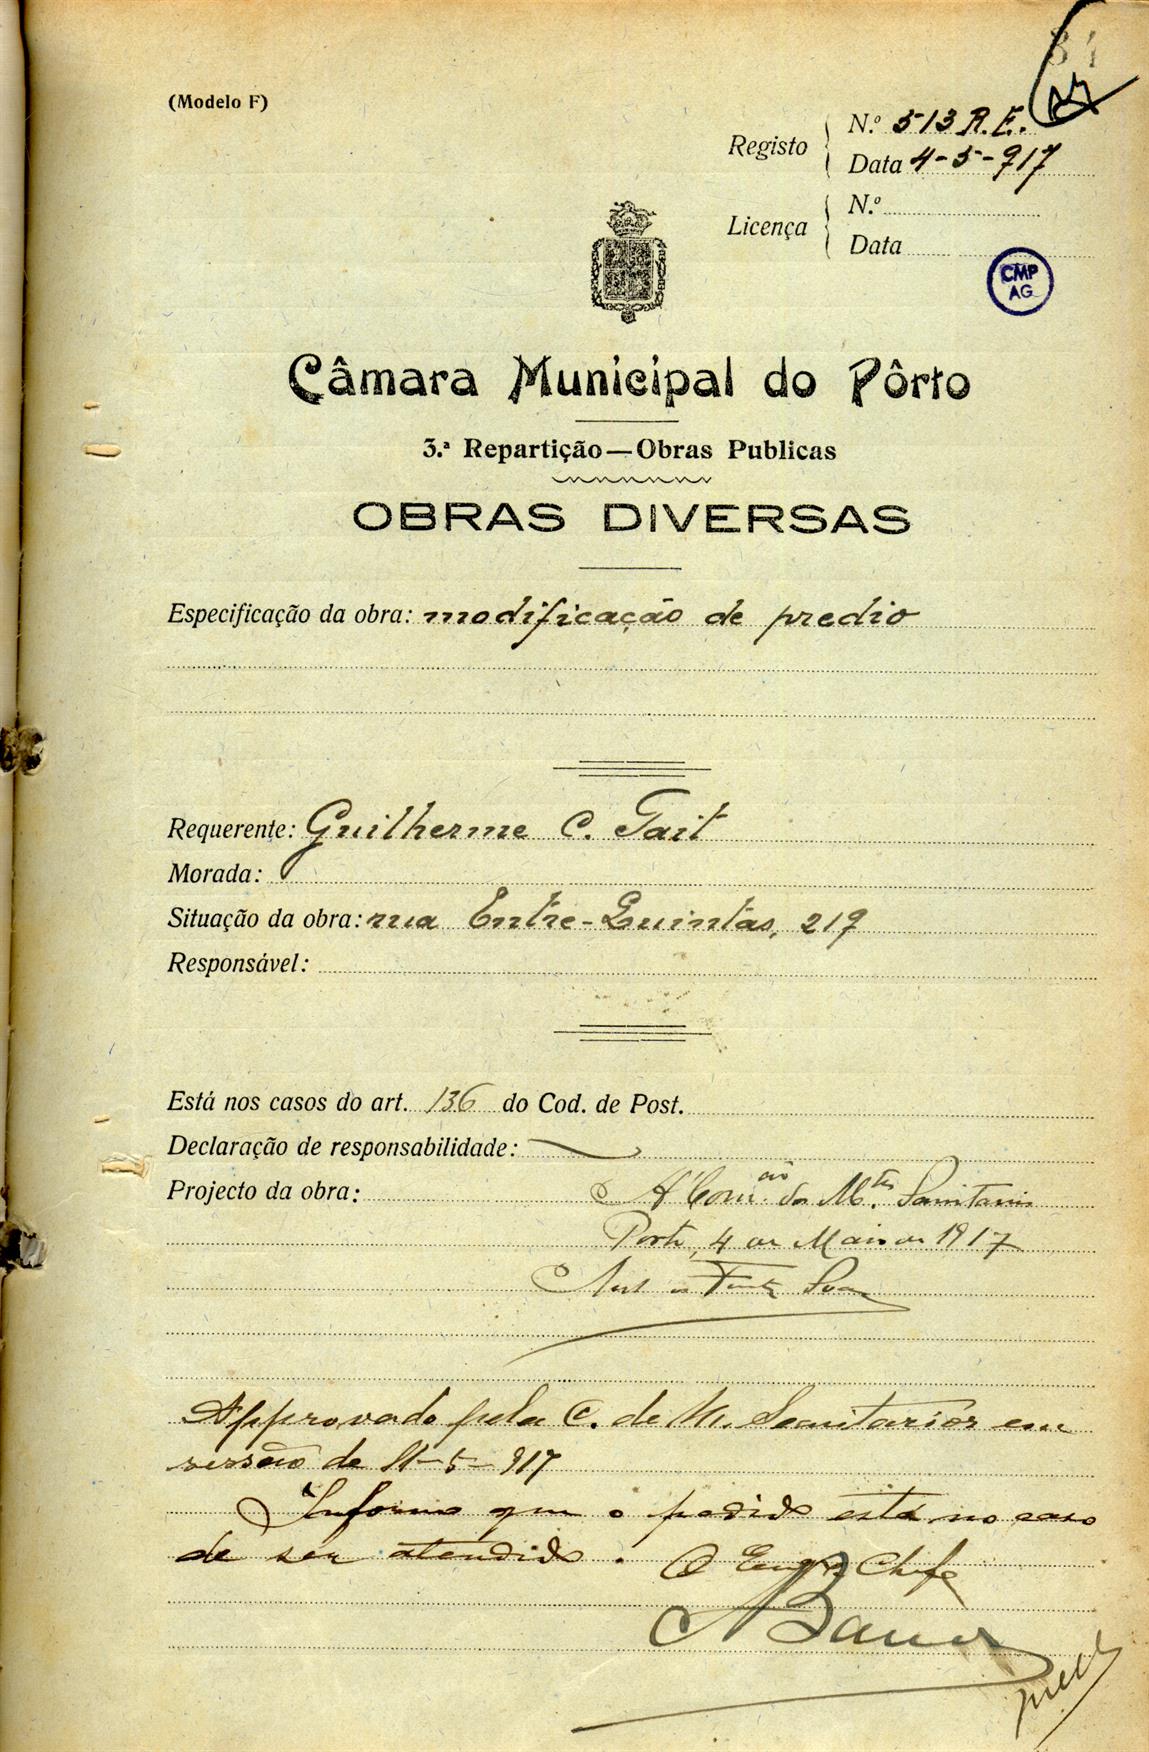 84
(Modelo F)
Registo
N.º 513 R.E.
Data 4-5-917
Licença
N.º
Data
CMP
AG
Câmara Municipal do Pôrto
3.ª Repartição—Obras Publicas
OBRAS DIVERSAS
Especificação da obra: modificação de predio
Requerente: Guilherme C. Tait
Morada:
Situação da obra: rua Entre-Quintas, 219
Responsável:
Está nos casos do art. 136 do Cod. de Post.
Declaração de responsabilidade:
Projecto da obra: A' Com.ão de M.tos Sanitarios
Porto, 4 de Maio de 1917
Approvado pela C. de M. Sanitarios em
sessão de 11-5-917
Informo que o pedido está no caso
de ser atendido. O Eng.º Chefe